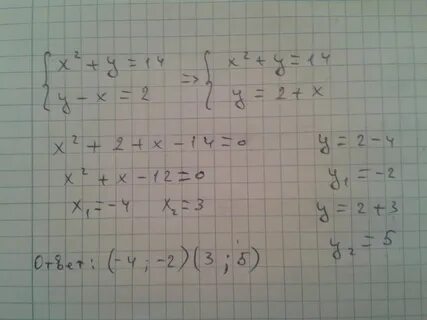 { x² + y = 14 => { x² + y = 14
{ y - x = 2 { y = 2 + x
x² + 2 + x - 14 = 0
x² + x - 12 = 0
x₁ = -4 x₂ = 3
y = 2 - 4
y₁ = -2
y = 2 + 3
y₂ = 5
Ответ: (-4 ; -2) (3 ; 5)